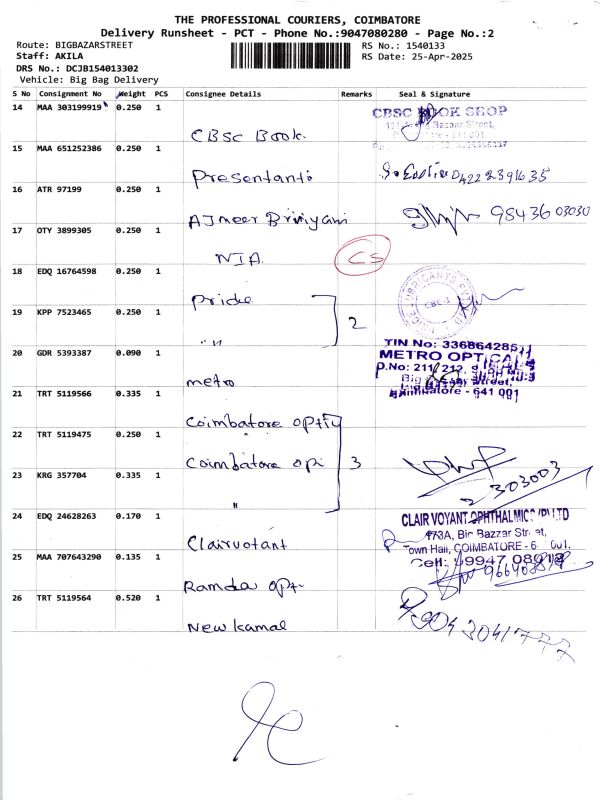 THE PROFESSIONAL COURIERS, COIMBATORE
Delivery Runsheet - PCT - Phone No.:9047080280 - Page No.:2
Route: BIGBAZARSTREET
RS No.: 1540133
Staff: AKILA
RS Date: 25-Apr-2025
DRS No.: DCJB154013302
Vehicle: Big Bag Delivery
S No Consignment No Weight PCS Consignee Details Remarks Seal & Signature
14 MAA 303199919 0.250 1
CBSC BOOK SHOP
Bazaar Street,
CBSC Book.
15 MAA 651252386 0.250 1
Presentanti
0422 2391635
16 ATR 97199 0.250 1
AJmeer Briniyani
98436 03030
17 OTY 3899305 0.250 1
NIA
CS
18 EDQ 16764598 0.250 1
Pride
19 KPP 7523465 0.250 1
" "
2
20 GDR 5393387 0.090 1
TIN No: 33686428511
METRO OPTICAL
D.No: 211, 212,
Big Bazaar Street,
Coimbatore - 641 001
metro
21 TRT 5119566 0.335 1
Coimbatore opti
22 TRT 5119475 0.250 1
Coimbatore opi
3
23 KRG 357704 0.335 1
"
303003
24 EDQ 24628263 0.170 1
CLAIR VOYANT OPHTHALMICS (P) LTD
473A, Big Bazzar Street,
Town Hall, COIMBATORE - 6 001.
Cell: 99947 08918
Clairvotant
25 MAA 707643290 0.135 1
Ramda opt.
26 TRT 5119564 0.520 1
New kamal
9043041777